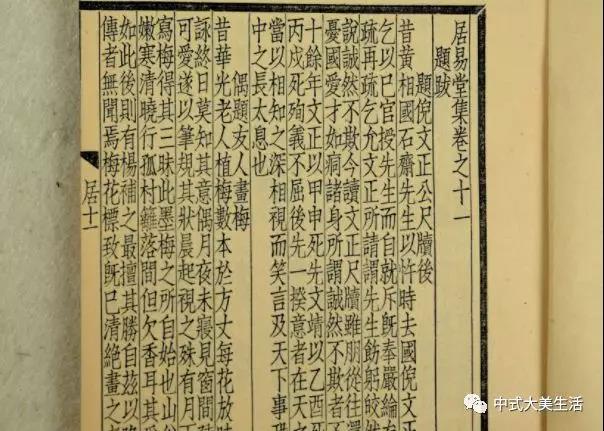 居易堂集卷之十一
題跋
題倪文正公尺牘後
昔黃相國石齋先生以忤時去國倪文正
乞以已官授先生而自就斥旣奉嚴綸
疏再疏乞允文正所請謂先生飭躬皎然
說誠然不欺今讀文正尺牘雖朋從往
憂國愛才如痌諸身所謂誠然不欺者
十餘年文正以甲申死先文靖以乙酉死
丙戌死殉義不屈後先一揆意者在天之
當以相知之深相視而笑言及天下事
中之長太息也
偶題友人畫梅
昔華光老人植梅數本於方丈每花放時
詠終日莫知其意偶月夜未寢見窗間
可愛遂以筆規其狀晨起視之殊有月
寫梅得其三昧此墨梅之所自始也山
嫩寒清曉行孤村籬落間但欠香耳其
如此後則有楊補之最擅其勝自茲以
傳者無聞焉梅花標致旣已清絕畫之
居十一
中式大美生活